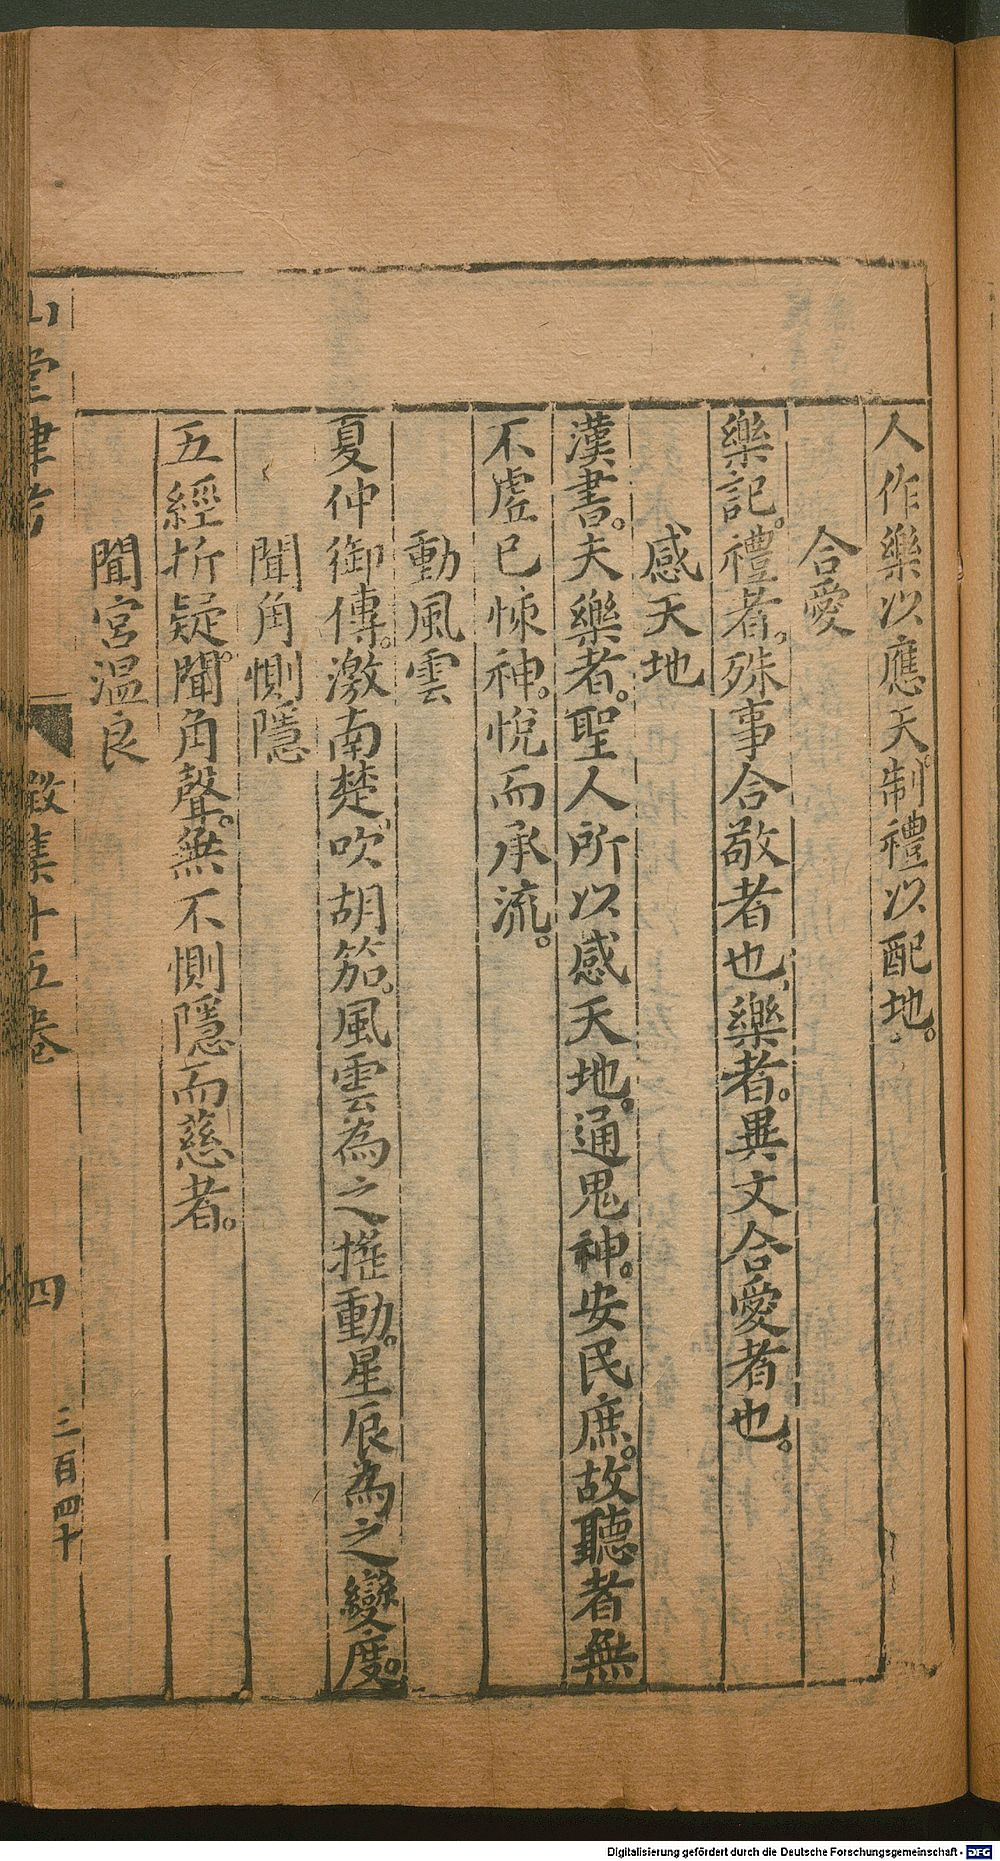 人作樂以應天。制禮以配地。
合愛
樂記。禮者。殊事合敬者也、樂者。異文合愛者也。
感天地
漢書。夫樂者。聖人所以感天地。通鬼神。安民庶。故聽者無
不虛已悚神。悅而承流。
動風雲
夏仲御傳。激南楚、吹胡笳。風雲為之搖動。星辰為之變度。
聞角惻隱
五經折疑。聞角聲。無不惻隱而慈者。
聞宮温良
山堂肆考
徵集十五卷
四
三百四十
Digitalisierung gefördert durch die Deutsche Forschungsgemeinschaft - DFG